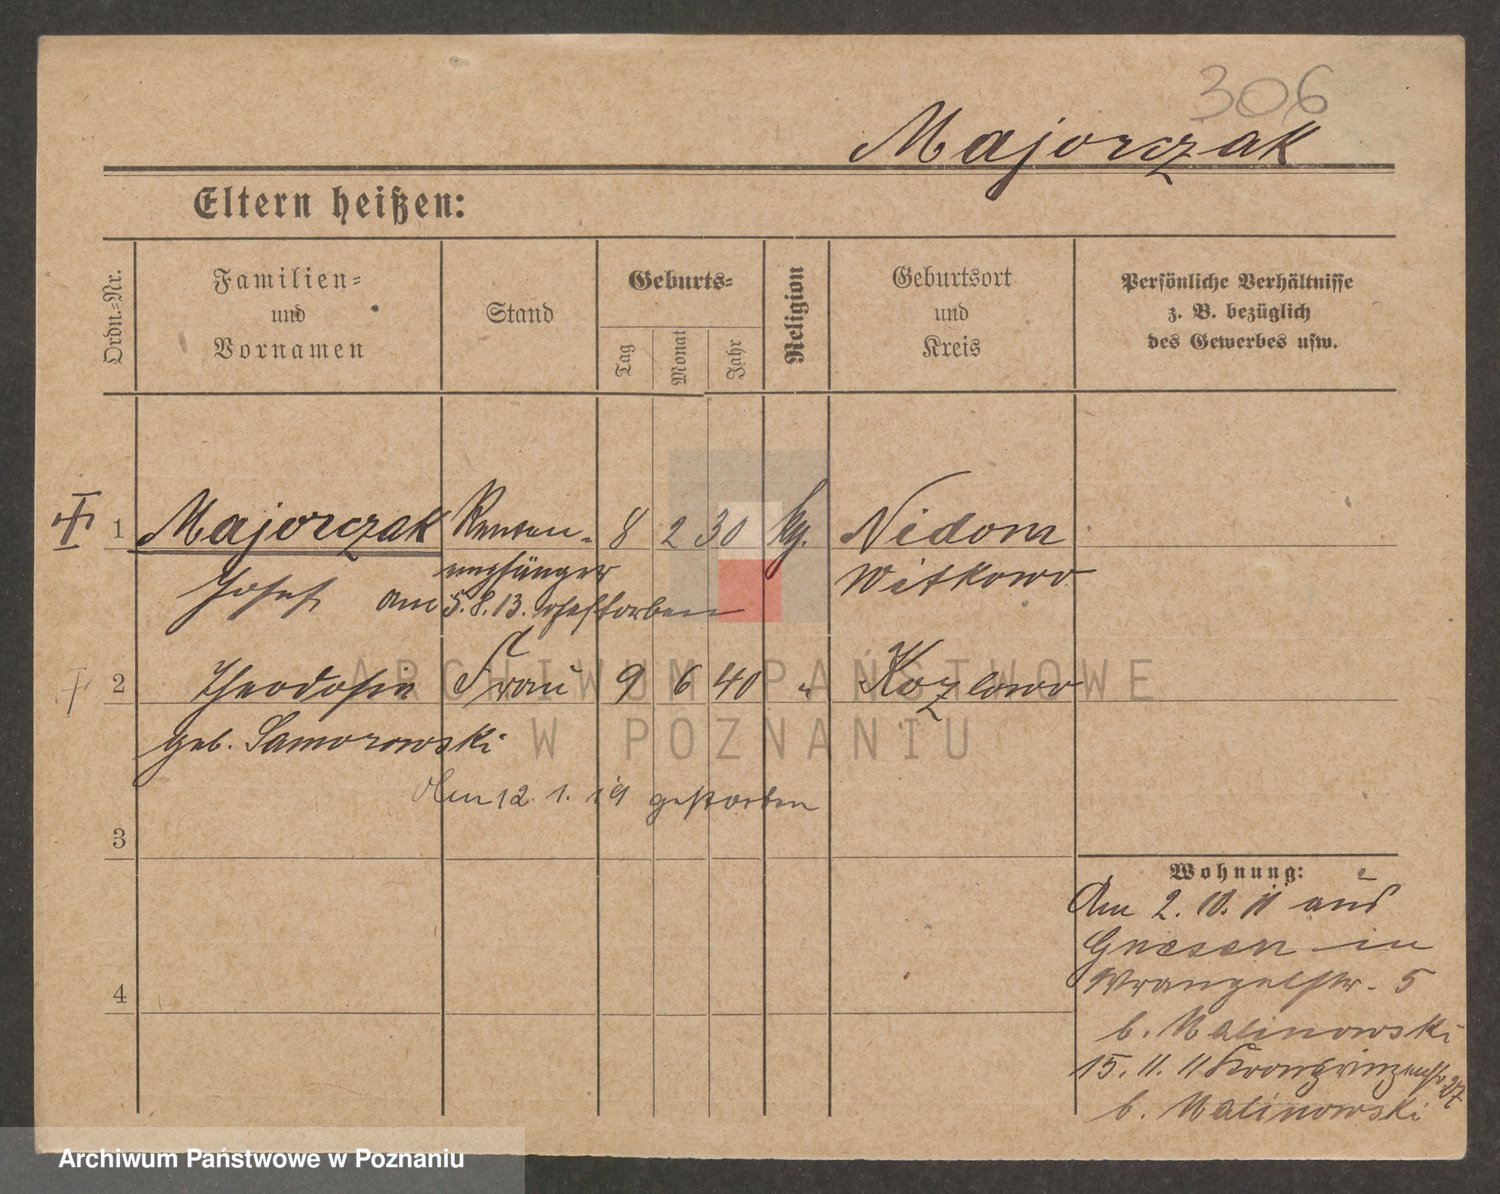 306
Majorczak
Eltern heißen:
Ordn.-Nr.
Familien-
und
Vornamen
Stand
Geburts-
Tag
Monat
Jahr
Religion
Geburtsort
und
Kreis
Persönliche Verhältnisse
z. B. bezüglich
des Gewerbes usw.
1 Majorczak Renten- 8 2 30 kg. Nidom
empfänger Witkowo
Josef am 5.8.13. gestorben
2 Theodosia Frau 9 6 40 " Kozlowo
geb. Samorowski
Am 12. 1. 19 gestorben
3
Wohnung:
Am 2. 10. 11 aus
Gnesen in
4
Wrangelstr. 5
b. Malinowski
15. 11. 11 Kronprinzenstr. 27
b. Malinowski
ARCHIWUM PAŃSTWOWE
W POZNANIU
Archiwum Państwowe w Poznaniu